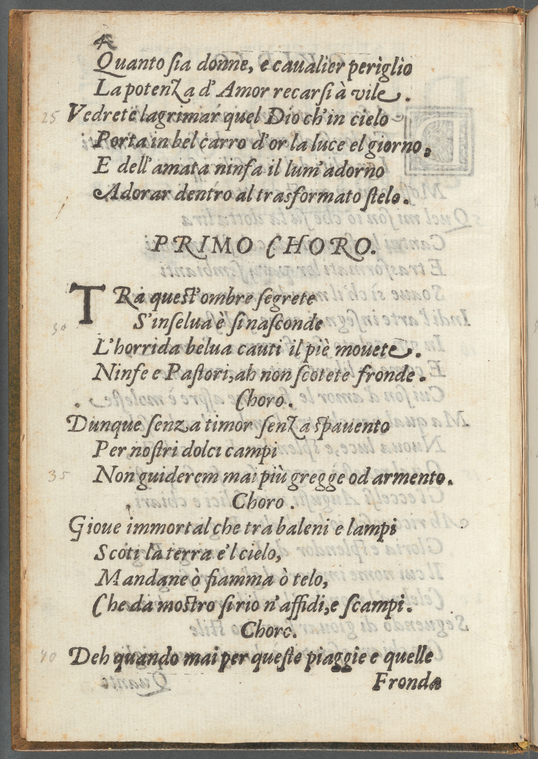 4
Quanto sia donne, e caualier periglio
La potenza d'Amor recarsi à vile.
25 Vedrete lagrimar quel Dio ch'in cielo
Porta in bel carro d'or la luce e'l giorno,
E dell'amata ninfa il lum'adorno
Adorar dentro al trasformato stelo.
PRIMO CHORO.
TRa quest'ombre segrete
30 S'inselua è si nasconde
L'horrida belua cauti il piè mouete.
Ninfe e Pastori, ah non scotete fronde.
Choro.
Dunque senza timor senza spauento
Per nostri dolci campi
35 Non guiderem mai più gregge od armento.
Choro.
Gioue immortal che tra baleni e lampi
Scoti la terra e'l cielo,
Mandane ò fiamma ò telo,
Che da mostro sì rio n'affidi, e scampi.
Choro.
40 Deh quando mai per queste piaggie e quelle
Fronda